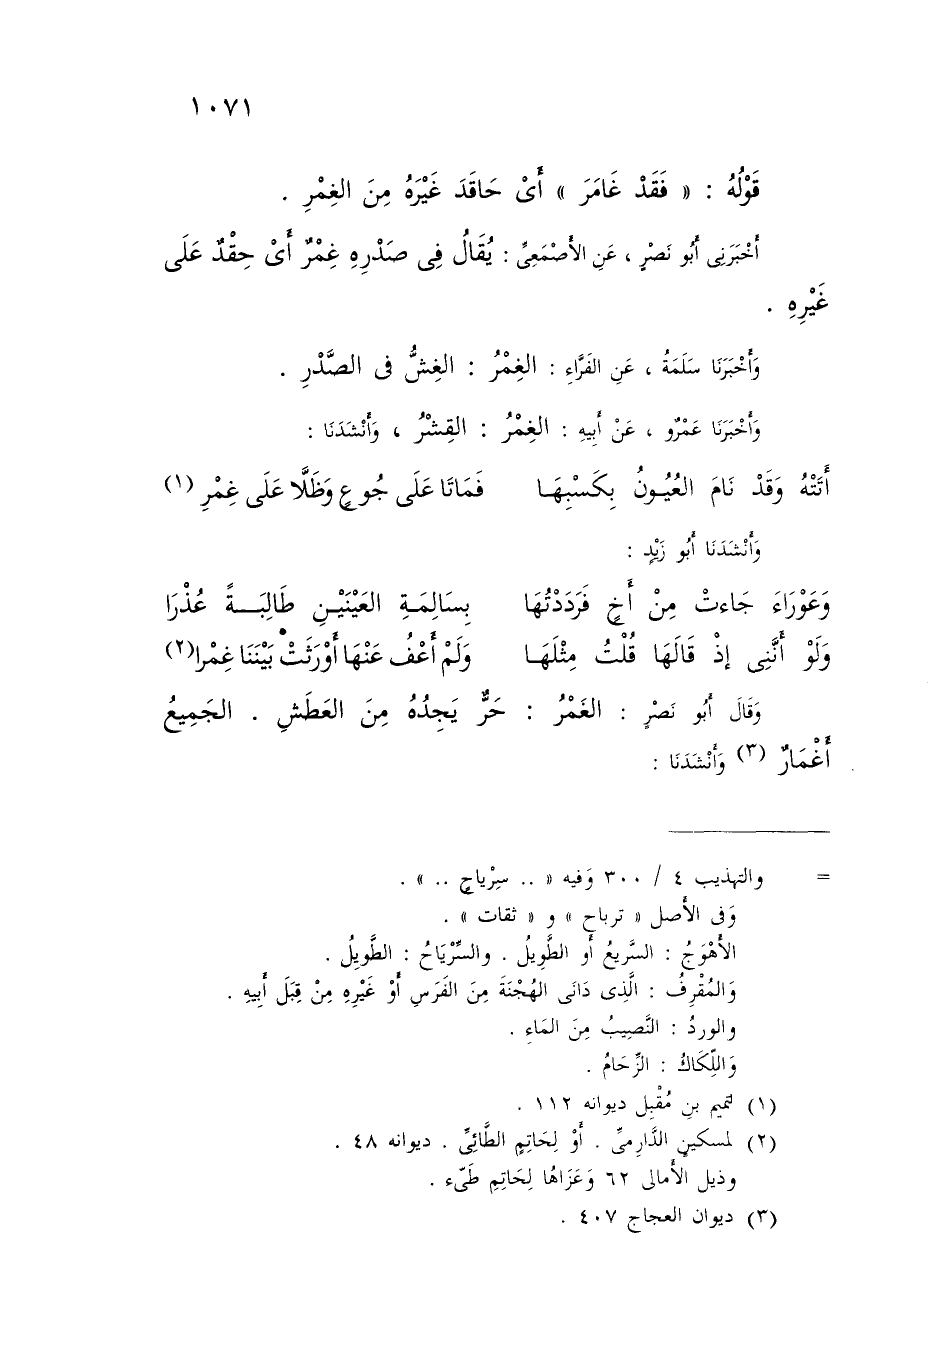 ١٠٧١
قَوْلُهُ : « فَقَدْ غَامَرَ » أَىْ حَاقَدَ غَيْرَهُ مِنَ الغِمْرِ .
أَخْبَرَنِى أَبُو نَصْرٍ ، عَنِ الأَصْمَعِىِّ : يُقَالُ فِى صَدْرِهِ غِمْرٌ أَىْ حِقْدٌ عَلَى
غَيْرِهِ .
وَأَخْبَرَنَا سَلَمَةُ ، عَنِ الفَرَّاءِ : الغِمْرُ : الغِشُّ فى الصَّدْرِ .
وَأَخْبَرَنَا عَمْرٌو ، عَنْ أَبِيهِ : الغِمْرُ : القِشْرُ ، وَأَنْشَدَنَا :
أَتَتْهُ وَقَدْ نَامَ العُيُونُ بِكَسْبِهَا فَمَاتَا عَلَى جُوعٍ وَظَلَّا عَلَى غِمْرِ (١)
وَأَنْشَدَنَا أَبُو زَيْدٍ :
وَعَوْرَاءَ جَاءتْ مِنْ أَخٍ فَرَدَدْتُهَا بِسَالِمَةِ العَيْنَيْنِ طَالِبَةً عُذْرَا
وَلَوْ أَنَّنِى إذْ قَالَهَا قُلْتُ مِثْلَهَا وَلَمْ أَعْفُ عَنْهَا أَوْرَثَتْ بَيْنَنَا غِمْرا(٢)
وَقَالَ أَبُو نَصْرٍ : الغَمْرُ : حَرٌّ يَجِدُهُ مِنَ العَطَشِ . الجَمِيعُ
أَغْمَارٌ (٣) وَأَنْشَدَنَا :
= والتهذيب ٤ / ٣٠٠ وَفيه « .. سِرْياحٍ .. » .
وَفى الأَصل « ترباح » و « ثقات » .
الأَهْوَجُ : السَّرِيعُ أَو الطَّوِيلُ . والسِّرْيَاحُ : الطَّوِيلُ .
وَالمُقْرِفُ : الَّذِى دَانَى الهُجْنَةَ مِنَ الفَرَسِ أَوْ غَيْرِهِ مِنْ قِبَلِ أَبِيهِ .
والوردُ : النَّصِيبُ مِنَ المَاءِ .
وَاللِّكَاكُ : الزِّحَامُ .
(١) لتميم بنِ مُقْبِل ديوانه ١١٢ .
(٢) لمسكينٍ الدَّارِمىِّ . أَوْ لِحَاتِمٍ الطَّائِىِّ . ديوانه ٤٨ .
وذيل الأَمالى ٦٢ وَعَزَاهُا لِحَاتِمِ طَىّء .
(٣) ديوان العجاج ٤٠٧ .